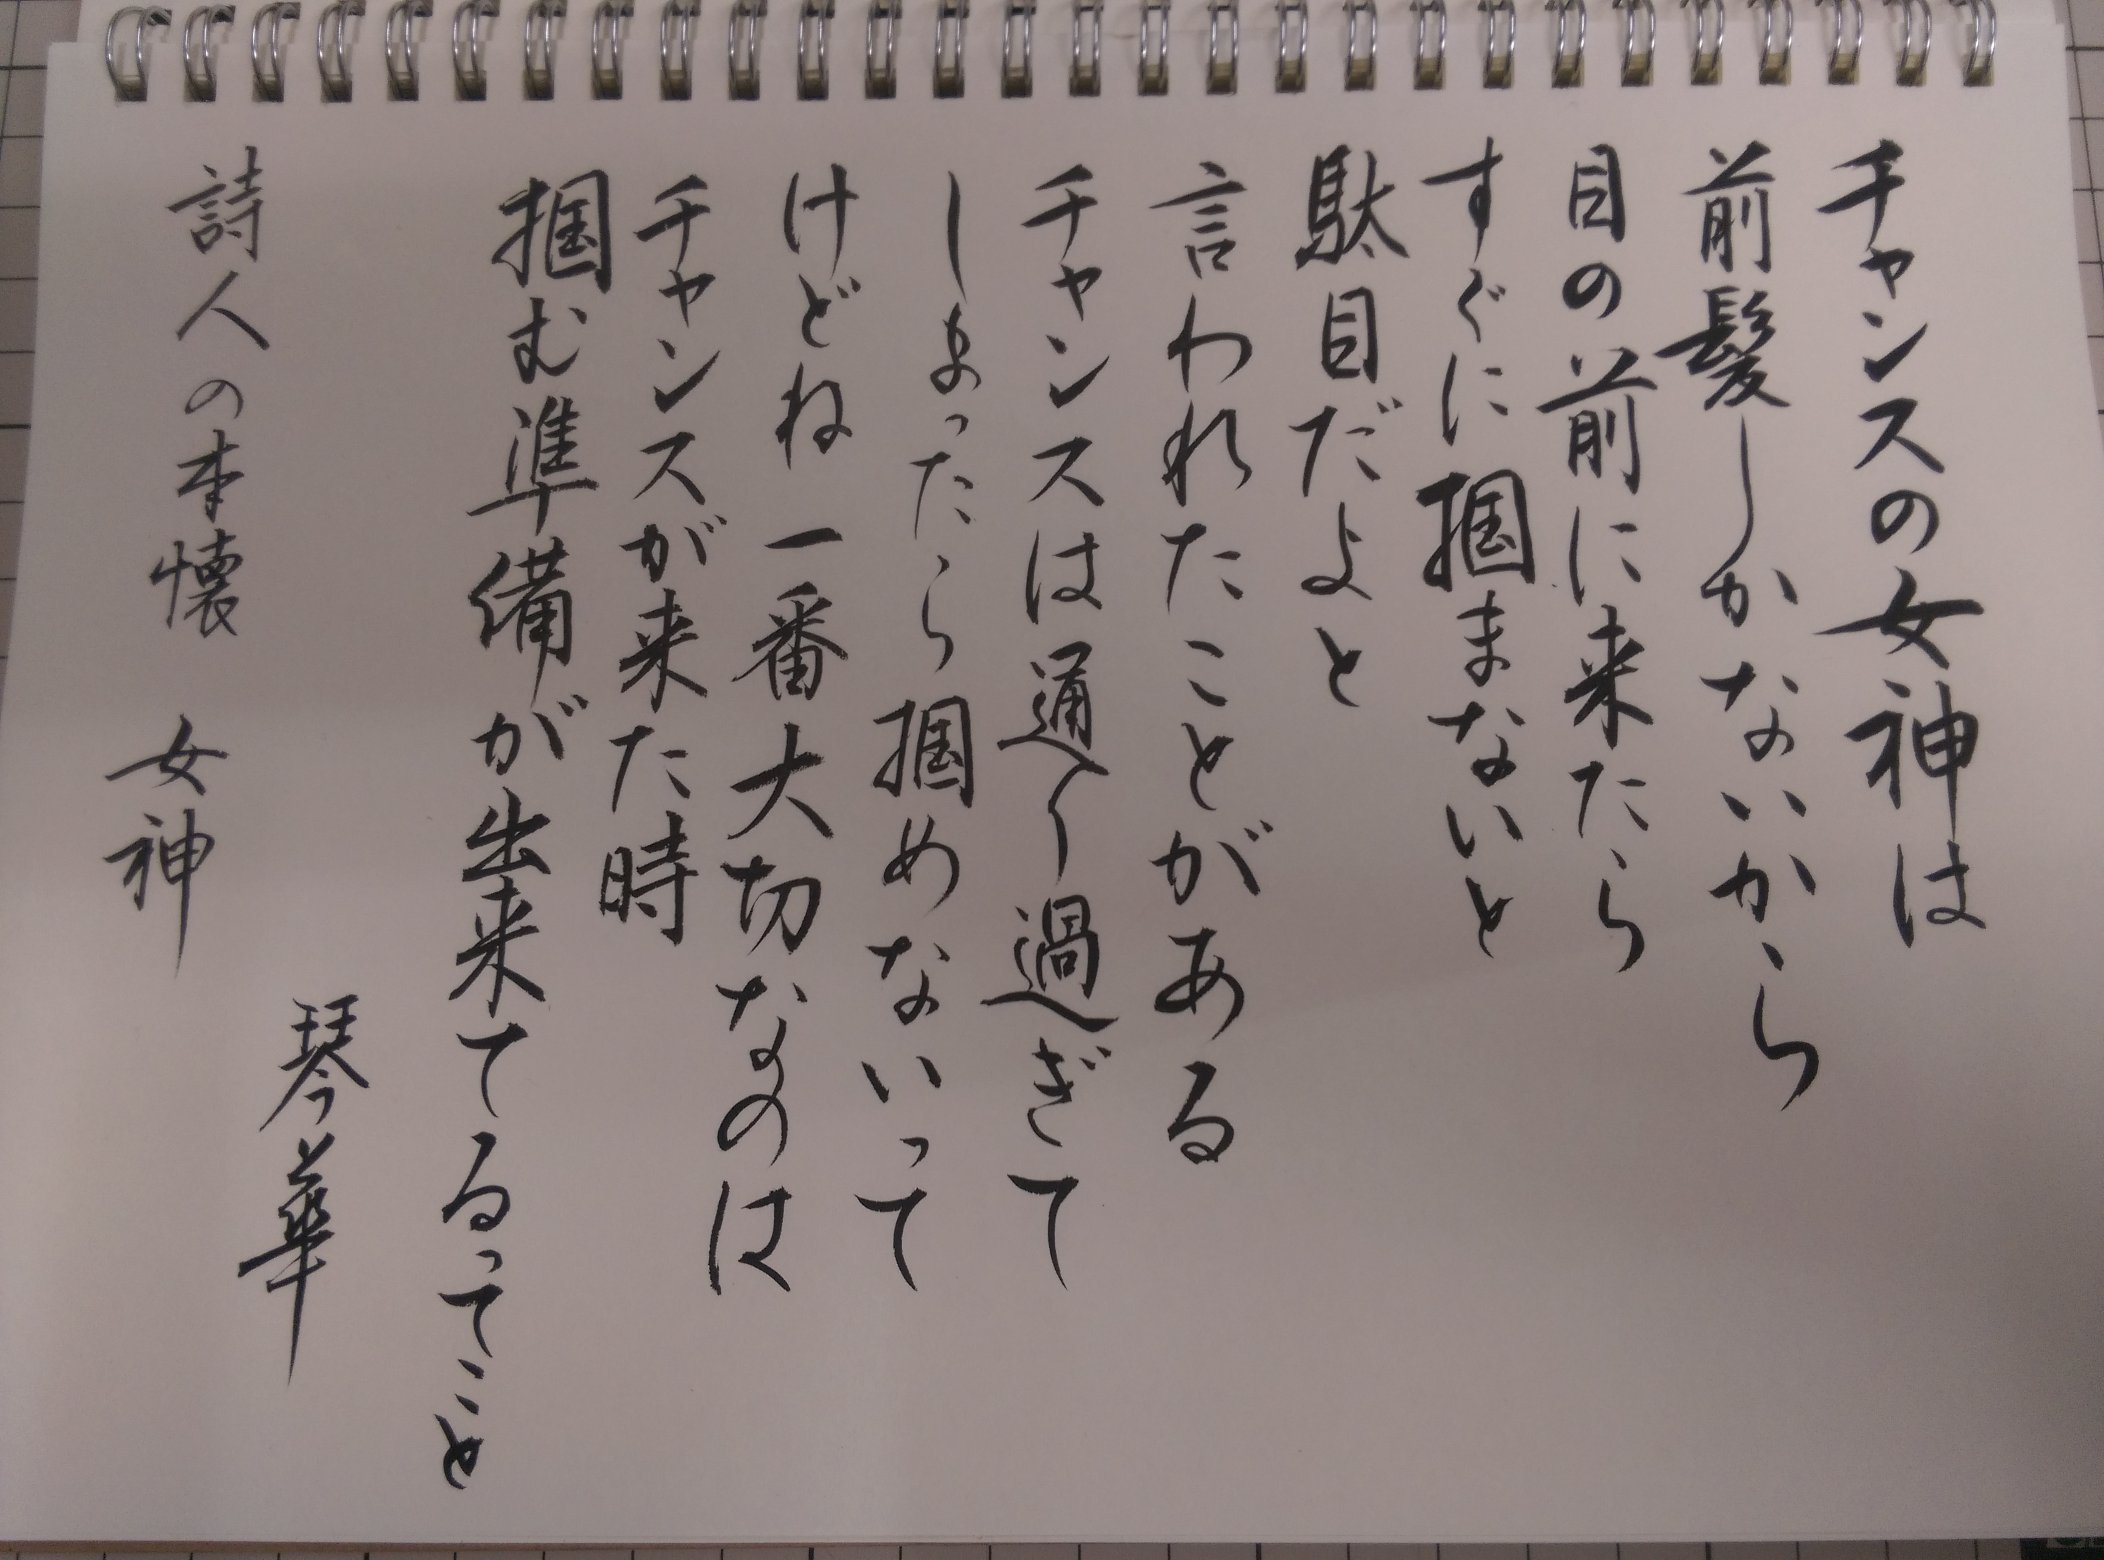 チャンスの女神は
前髪しかないから
目の前に来たら
すぐに掴まないと
駄目だよと
言われたことがある
チャンスは通り過ぎて
しまったら掴めないって
けどね 一番大切なのは
チャンスが来た時
掴む準備が出来てるってこと
琴華
詩人の本懐 女神